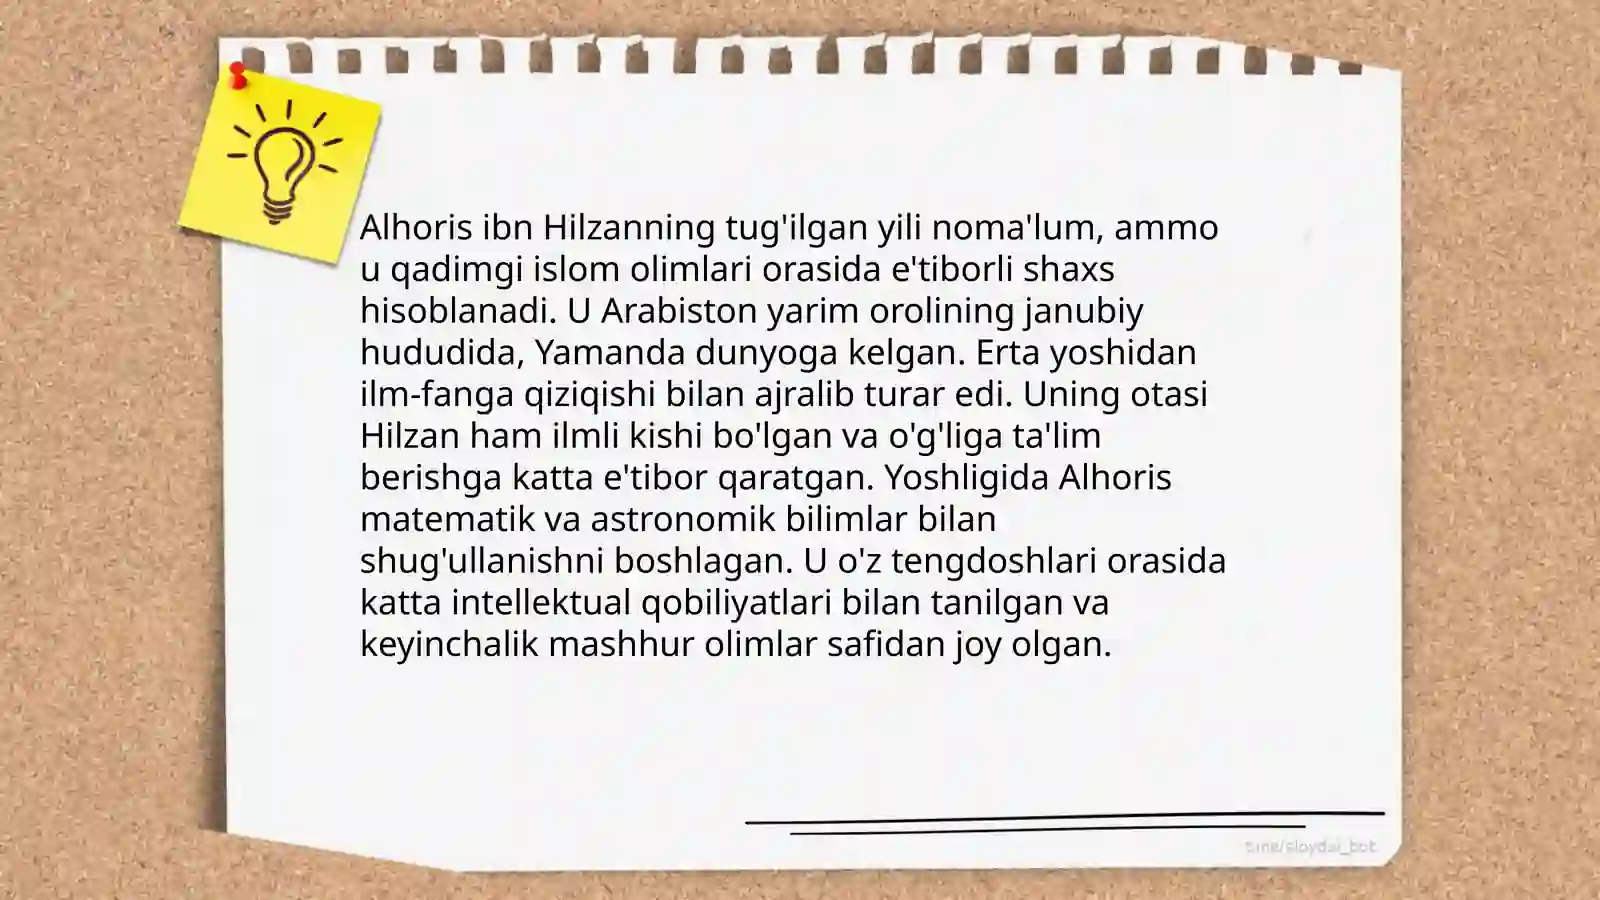 Alhoris ibn Hilzanning tug'ilgan yili noma'lum, ammo
u qadimgi islom olimlari orasida e'tiborli shaxs
hisoblanadi. U Arabiston yarim orolining janubiy
hududida, Yamanda dunyoga kelgan. Erta yoshidan
ilm-fanga qiziqishi bilan ajralib turar edi. Uning otasi
Hilzan ham ilmli kishi bo'lgan va o'g'liga ta'lim
berishga katta e'tibor qaratgan. Yoshligida Alhoris
matematik va astronomik bilimlar bilan
shug'ullanishni boshlagan. U o'z tengdoshlari orasida
katta intellektual qobiliyatlari bilan tanilgan va
keyinchalik mashhur olimlar safidan joy olgan.